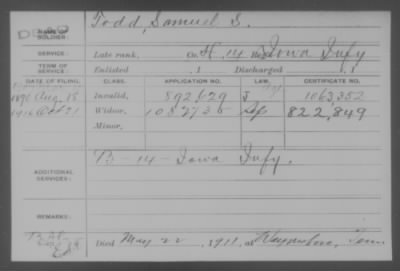 NAME OF SOLDIER: Todd, Samuel S.
SERVICE: Late rank, Co. H, 14 Reg. Iowa Infy
TERM OF SERVICE: Enlisted , 1 Discharged , 1
DATE OF FILING. CLASS. APPLICATION NO. LAW. CERTIFICATE NO.
1890 Aug. 18 Invalid, 892629 1063,352
1916 Oct 21 Widow, 822,849
Minor,
ADDITIONAL SERVICES: B-14-Iowa Infy.
REMARKS:
Died May 22, 1911, at Tenn